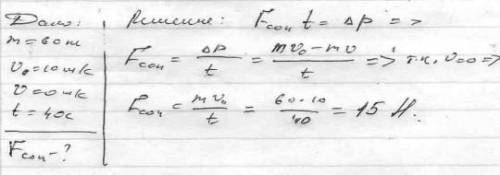 Дано:
m = 60т
v₀ = 10 м/с
v = 0 м/с
t = 40с
Fсоп - ?
Решение: Fсоп t = Δp =>
Fсоп = Δp / t = mv₀ - mv / t => т.к. v=0 =>
Fсоп = mv₀ / t = 60·10 / 40 = 15 Н.